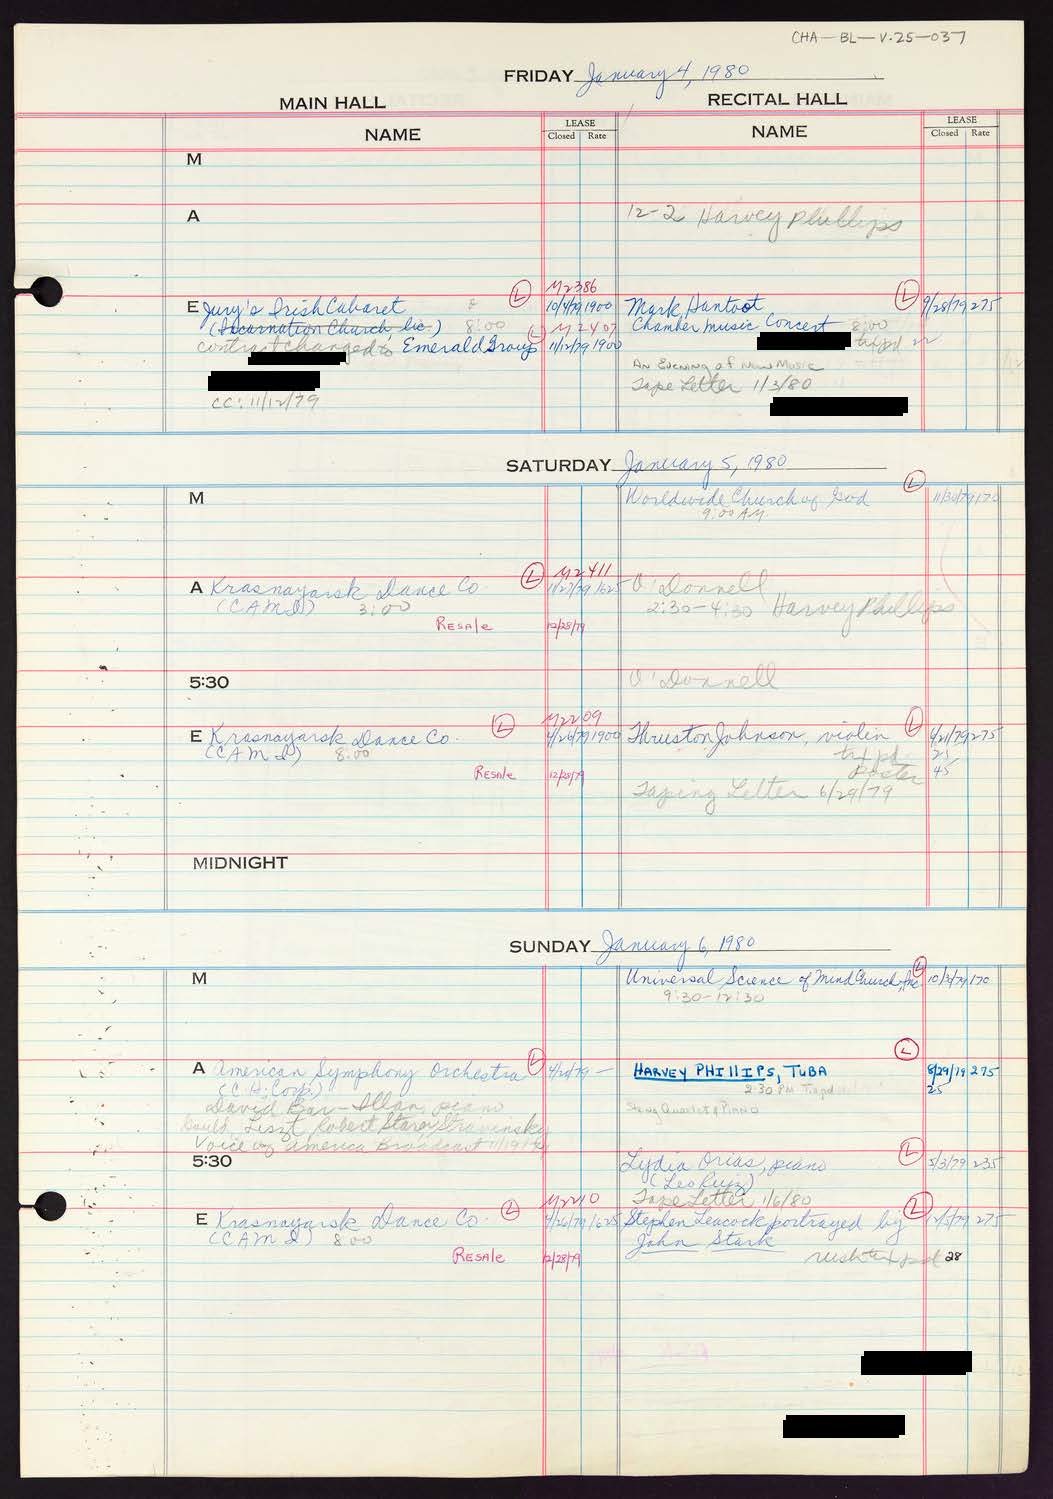 CHA-BL-V.25-037
FRIDAY January 4, 1980
MAIN HALL
RECITAL HALL
NAME
LEASE
Closed Rate
NAME
LEASE
Closed Rate
M
A
12-2 Harvey Phillips
M2386
E Jury's Irish Cabaret L 10/4/79 1900
(Incarnation Church, Inc.) 8:00 L M2407
contract changed to Emerald Group 11/12/79 1900
CC: 11/12/79
Mark Hantoot L 9/28/79 275
Chamber music Concert 8:00
An Evening of New Music
Tape Letter 1/3/80
SATURDAY January 5, 1980
M
Worldwide Church of God L 11/30/79 170
9:00 AM
A Krasnayarsk Dance Co. L M2411
(CAMI) 3:00 11/27/79 1625
Resale 12/28/79
O'Donnell
2:30-4:30 Harvey Phillips
5:30
O'Donnell
E Krasnayarsk Dance Co. L M2209
(CAMI) 8:00 4/26/79 1900
Resale 12/28/79
Thruston Johnson, violin L 6/21/79 275
txt pd 25
Poster 45
Taping Letter 6/29/79
MIDNIGHT
SUNDAY January 6, 1980
M
Universal Science of Mind Church, Inc L 10/3/79 170
9:30-12:30
A American Symphony Orchestra L
(C.H. Corp)
David Bar-Illan, piano
Gould, Liszt, Robert Starer, Stravinsky
Voice of America Broadcast
HARVEY PHILLIPS, TUBA L 8/29/79 275
2:30 PM 25
String Quartet & Piano
5:30
Lydia Orias, piano L 5/3/79 235
(Leo Ruiz)
Tape Letter 1/6/80
M2210
E Krasnayarsk Dance Co. L 4/26/79 1625
(CAMI) 8:00
Resale 12/28/79
Stephen Leacock portrayed by L 275
John Stark
28